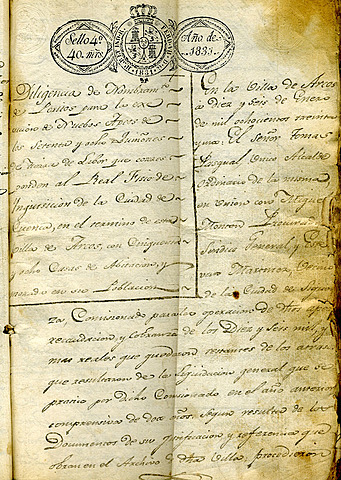 Sello 4º
40. mrs.
Año de
1831.
Diligencia de Nombram.to
de Peritos para la exe
cución de Nuebos Apeos de
los Setenta y ocho
de tierra de Labor que corres
ponden al Real Fisco de
Inquisicion de la Ciudad de
Cuenca, en el termino de esta
Villa de Arcos, con Cinquenta
y ocho Casas de Abitacion, y
en su Poblacion
En la Villa de Arcos
à Diez y Seis de Enero
de mil ochocientos treinta
y uno. El Señor Tomas
Pasqual Unico Alcalde
Ordinario de la misma
en Union con Miguel
Monton Procurador
Sindico General, y
Martinez, Vecino
de la Ciudad de Siguen
za, Comisionado para la operacion de Dhos Apeos
recaudacion, y cobranza de los Diez y Seis mil, y
mas reales que quedaron restantes de los atrasos
que resultaron de la liquidacion general que se
practicó por dicho Comisionado en el año anterior
comprensiva de dos años. Segun resulta de los
Documentos de su justificacion y referencia que
obran en el Archivo de dha Villa, procedieron